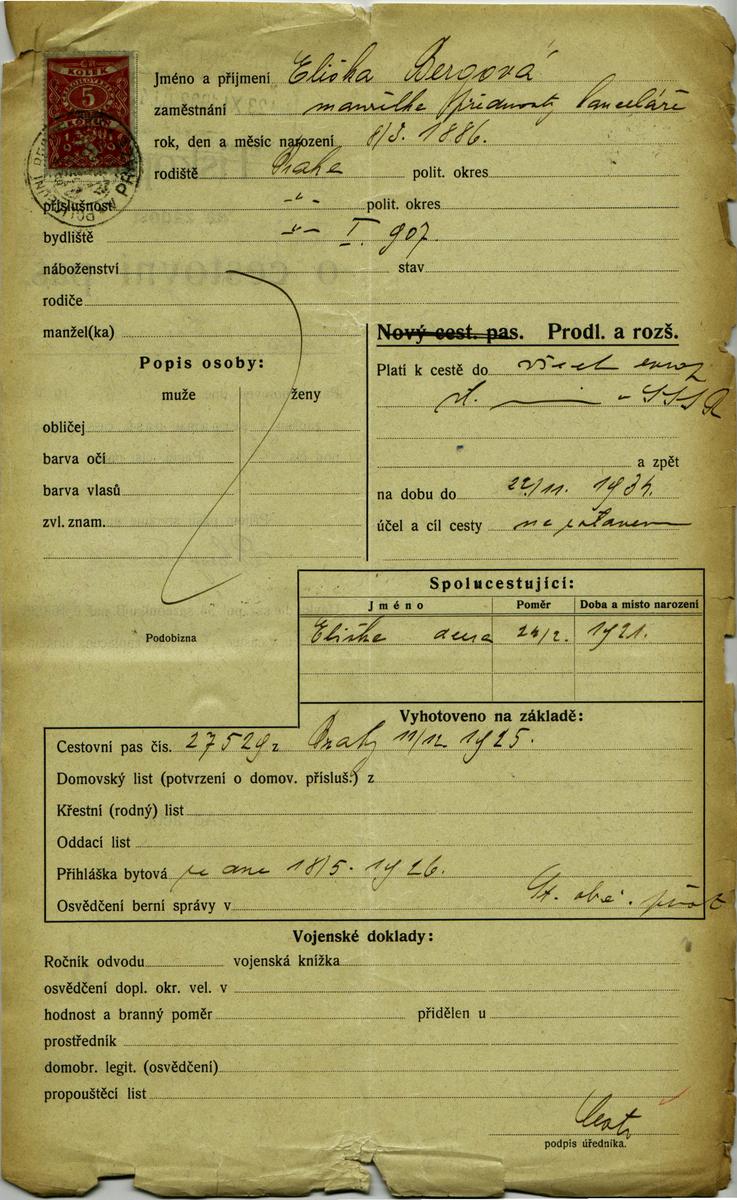 KOLEK
5
Jméno a příjmení Eliška Bergová
zaměstnání manželka přednosty kanceláře
rok, den a měsíc narození 8/3. 1886.
rodiště Praha polit. okres
příslušnost -"- polit. okres
bydliště -"- I. 907.
náboženství stav
rodiče
manžel(ka)
Nový cest. pas. Prodl. a rozš.
Popis osoby:
muže ženy
obličej
barva očí
barva vlasů
zvl. znam.
Podobizna
Platí k cestě do všech evrop
st. SSSR
a zpět
na dobu do 22/11. 1934.
účel a cíl cesty
Spolucestující:
Jméno Poměr Doba a místo narození
Eliška dcera 24/2. 1921.
Vyhotoveno na základě:
Cestovní pas čís. 27529 Prahy 11/12 1925.
Domovský list (potvrzení o domov. přísluš.) z
Křestní (rodný) list
Oddací list
Přihláška bytová ze dne 18/5. 1926.
Osvědčení berní správy v
St. obč.
Vojenské doklady:
Ročník odvodu vojenská knížka
osvědčení dopl. okr. vel. v
hodnost a branný poměr přidělen u
prostředník
domobr. legit. (osvědčení)
propouštěcí list
podpis úředníka.